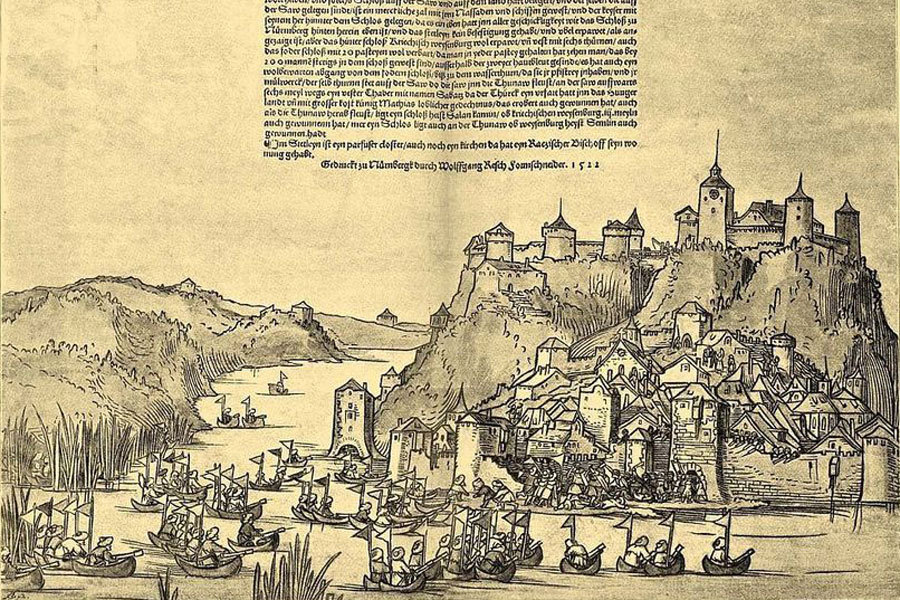 der Saw gelegen sind/ist ein merckliche zal mit sein Nassaden vnd schiffen gewest/vnd der keyser mit
seynem her hinder dem Schlos gelegen/da es ein eben hatt
Nürmberg hinten herein eben ist/vnd das stetleyn kein befestigung gehabt/vnd vbel erpawet/als an-
gezaigt ist/aber das hinter schloß Kriechisch weyssenburg wol erpawt/vñ vest mit sechs thürnen/auch
das foder schloß mit 20 pasteyen wol verbart/da man in yeder pastey gehalten hat zehen man/das bey
200 mann stetigs in dem schoß gewest sind/ausserhalb der zweyer haubtleut gesinde/es hat auch eyn
wolberwarten abgang von dem fodern schloß/biß zu dem wasserthurn/da sie jr pfistrey inhaben/vnd jr
mülwerck/der selb thurnn stet auff der Saw do die saw inn die Thunaw fleust/an der saw auffwarts
sechs meyl wegs eyn vester Thader mit namen Sabatz da der Thürck eyn vesait hatt inn das hunger
landt vñ mit grosser kost künig Mathias loblicher gedechtnus/das erobert auch gewunnen hat/auch
als die Thunaw herab fleust/ligt eyn schloß heist Salan kamun/ob kriechischen weyssenburg.iij.meyln
auch gewunnenn hat/mer eyn Schlos ligt auch an der Thunaw ob weyssenburg heyst Semlin auch
gewunnen.hadt
Im Stetleyn ist eyn parfusser closter/auch noch eyn kirchen da hat eyn Raczischer Bischoff seyn wo
nung gehabt.
Gedruckt zu Nürmbergk durch Wolffgang Resch Formschneider. 1522